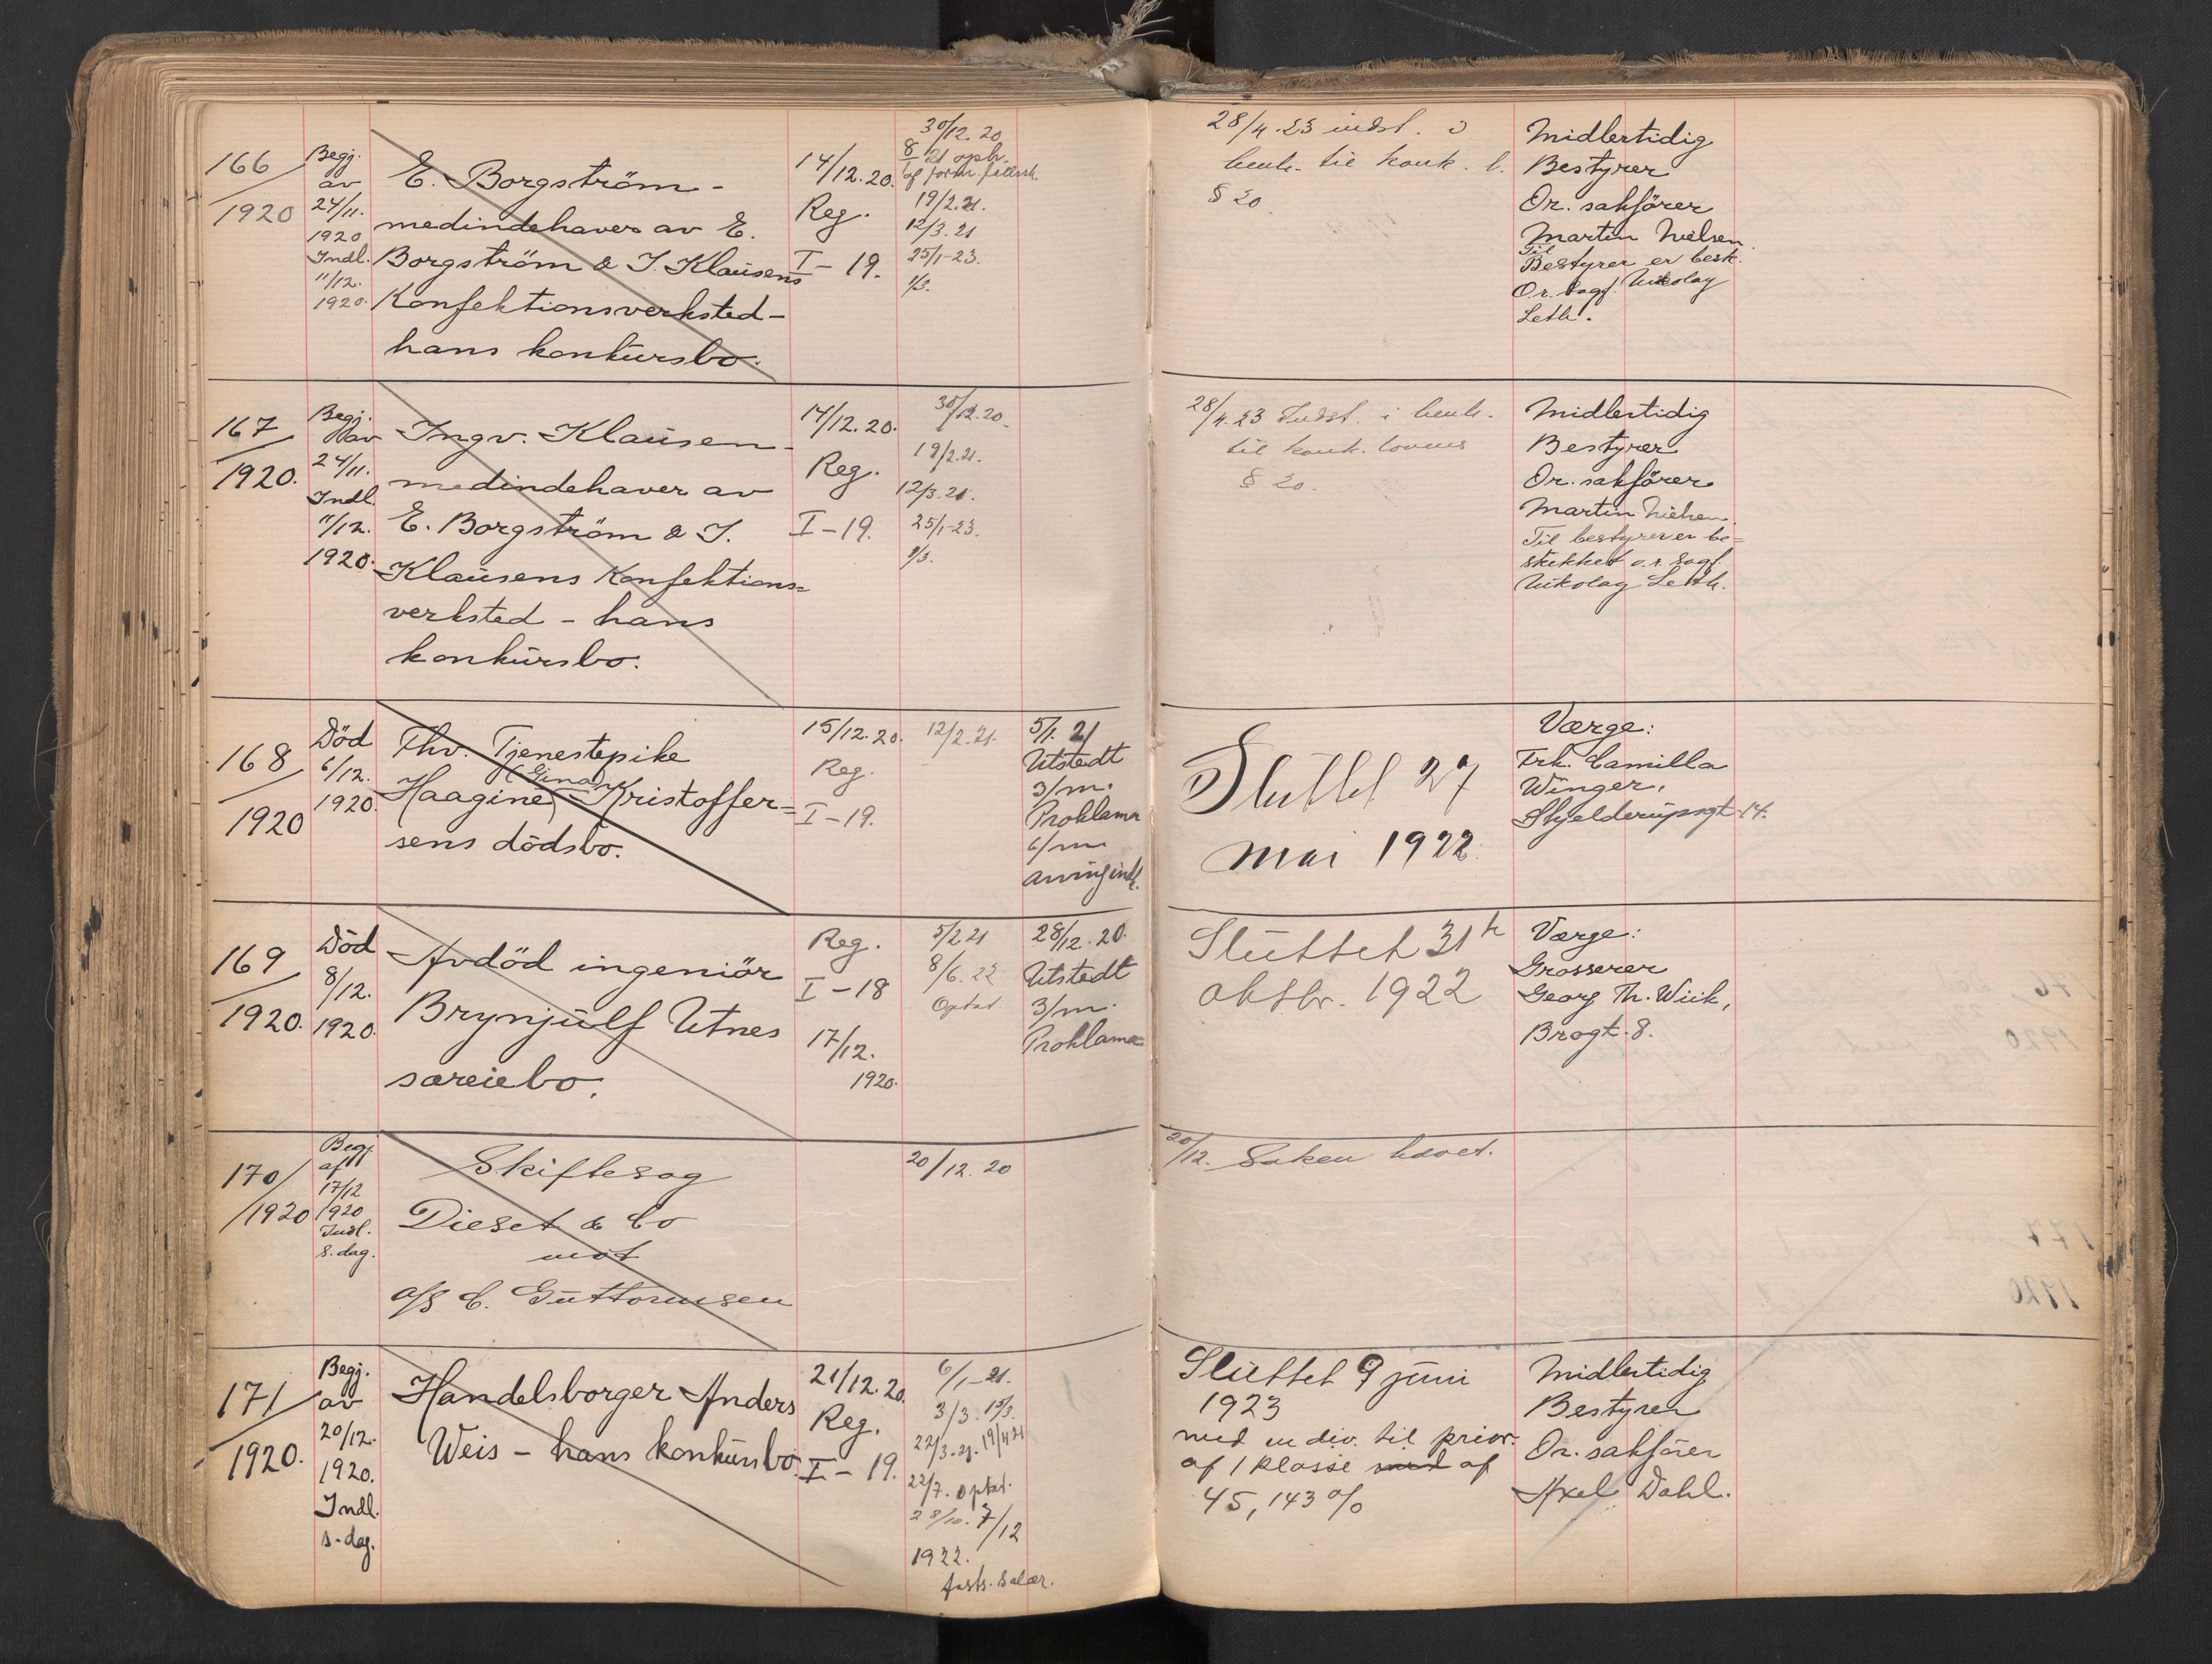 166/1920
Begj.
av
24/11.
1920
Indl.
11/12.
1920.
E. Borgström -
medindehaver av E.
Borgström & I. Klausens
Konfektionsverksted -
hans konkursbo.
14/12.20.
Reg.
I - 19.
30/12.20
19/2.21.
12/3.21
25/1-23.
1/3.
28/4.23 indst. i
henh. til konk. l.
§ 20.
Midlertidig
Bestyrer
Or. sakförer
Martin Nielsen.
Til
Bestyrer er besk.
O.r. sagf. Nikolay
Leth.
167/1920.
Begj.
av
24/11.
Indl.
11/12.
1920.
Ingv. Klausen -
medindehaver av
E. Borgström & I.
Klausens Konfektions=
verksted - hans
konkursbo.
14/12.20.
Reg.
I - 19.
30/12.20.
19/2.21.
12/3.21.
25/1-23.
1/3.
28/4.23 Indst. i henh.
til konk. lovens
§ 20.
Midlertidig
Bestyrer
Or. sakförer
Martin Nielsen.
Til bestyrer er be=
skikket o.r. sagf.
Nikolay Leth.
168/1920
Död
6/12.
1920.
Fhv. Tjenestepike
(Gina)
Haagine Kristoffer=
sens dödsbo.
15/12.20.
Reg.
I - 19.
12/2.21.
5/1.21
Utstedt
3/m.
Proklama
6/m
arvingindk.
Sluttet 27
mai 1922.
Værge:
Frk. Camilla
Winger,
Skjelderupsgt. 14.
169/1920.
Död
8/12.
1920.
Avdöd ingeniör
Brynjulf Utnes
særeiebo.
Reg.
I - 18
17/12.
1920.
5/2 21
8/6.22
Optat
28/12.20.
Utstedt
3/m.
Proklama
Sluttet 31te
oktbr. 1922
Værge:
Grosserer
Georg Th. Wiik,
Brogt. 8.
170/1920
Begj.
af
17/12
1920
Indl.
s. dag.
Skiftesag
Dieset & Co
mot
a/s C. Guttormsen
20/12.20
20/12. Saken hævet.
171/1920.
Begj.
av
20/12.
1920.
Indl.
s. dag.
Handelsborger Anders
Weis - hans konkursbo.
21/12.20.
Reg.
I - 19.
6/1-21.
3/3. 15/3.
22/3.21. 19/4 21
22/7. Optat.
28/10. 7/12
1922.
fasts. Salær.
Sluttet 9 juni
1923
med en div. til prior.
af 1 klasse med af
45,143 %
Midlertidig
Bestyrer
Or. sakförer
Axel Dahl.